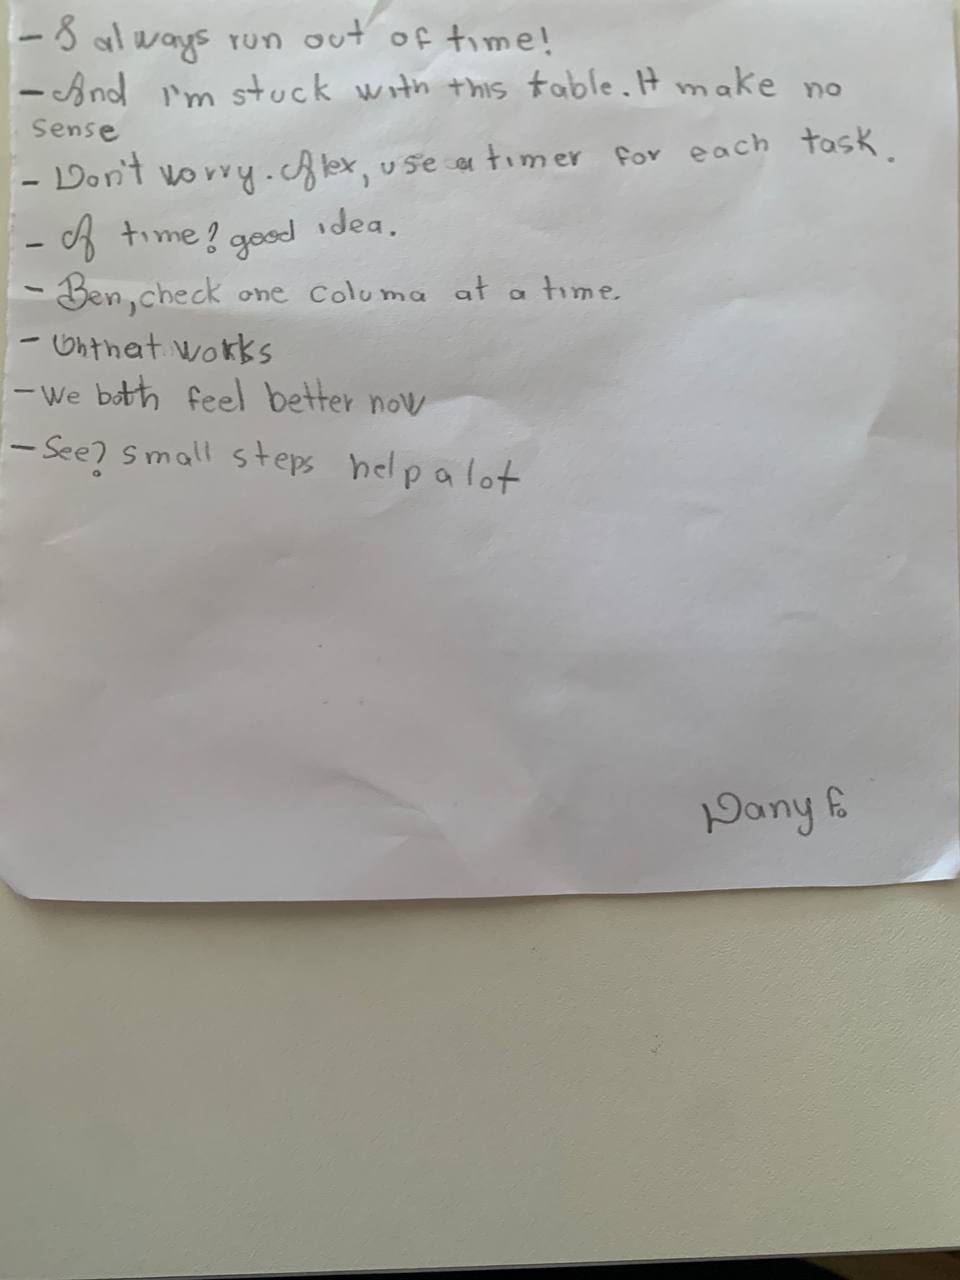 - I always run out of time!
- And I'm stuck with this table. It make no
sense
- Don't worry. Alex, use a timer for each task.
- A time? good idea.
- Ben, check one columa at a time.
- Uhthat works
- We both feel better now
- See? small steps help a lot
Dany F.